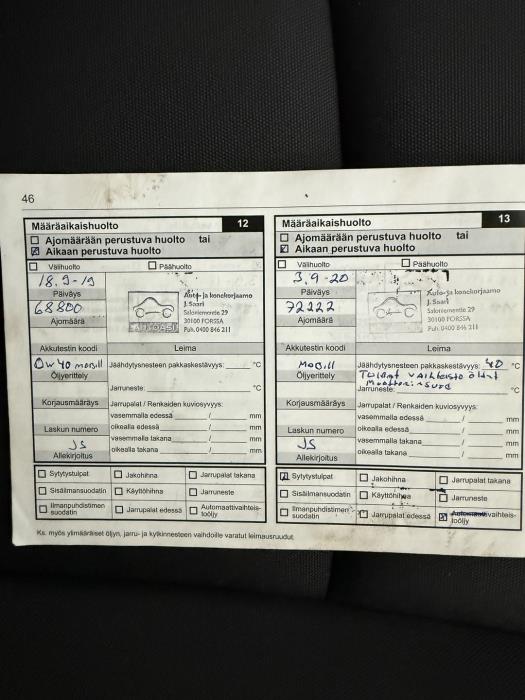 46
Määräaikaishuolto 12
Ajomäärään perustuva huolto tai
Aikaan perustuva huolto
Välihuolto Päähuolto
18.9-19
Päiväys
68800
Ajomäärä
Auto- ja konekorjaamo
J. Saari
Saloniementie 29
30100 FORSSA
Puh. 0400 846 211
AUTOASI
Akkutestin koodi Leima
0w40 mobill Jäähdytysnesteen pakkaskestävyys: °C
Öljyerittely
Jarruneste: °C
Korjausmääräys Jarrupalat / Renkaiden kuviosyvyys:
vasemmalla edessä / mm
Laskun numero oikealla edessä / mm
JS vasemmalla takana / mm
Allekirjoitus oikealla takana / mm
Sytytystulpat Jakohihna Jarrupalat takana
Sisäilmansuodatin Käyttöhihna Jarruneste
Ilmanpuhdistimen suodatin Jarrupalat edessä Automaattivaihteis-
toöljy
Määräaikaishuolto 13
Ajomäärään perustuva huolto tai
Aikaan perustuva huolto
Välihuolto Päähuolto
3.9-20
Päiväys
72222
Ajomäärä
Auto- ja konekorjaamo
J. Saari
Saloniementie 29
30100 FORSSA
Puh. 0400 846 211
Akkutestin koodi Leima
Mobill Jäähdytysnesteen pakkaskestävyys: 40 °C
Öljyerittely vaihteisto öljyt
Jarruneste: °C
Korjausmääräys Jarrupalat / Renkaiden kuviosyvyys:
vasemmalla edessä / mm
Laskun numero oikealla edessä / mm
JS vasemmalla takana / mm
Allekirjoitus oikealla takana / mm
Sytytystulpat Jakohihna Jarrupalat takana
Sisäilmansuodatin Käyttöhihna Jarruneste
Ilmanpuhdistimen suodatin Jarrupalat edessä Automaattivaihteis-
toöljy
Ks. myös ylimääräiset öljyn, jarru- ja kytkinnesteen vaihdoille varatut leimausruudut